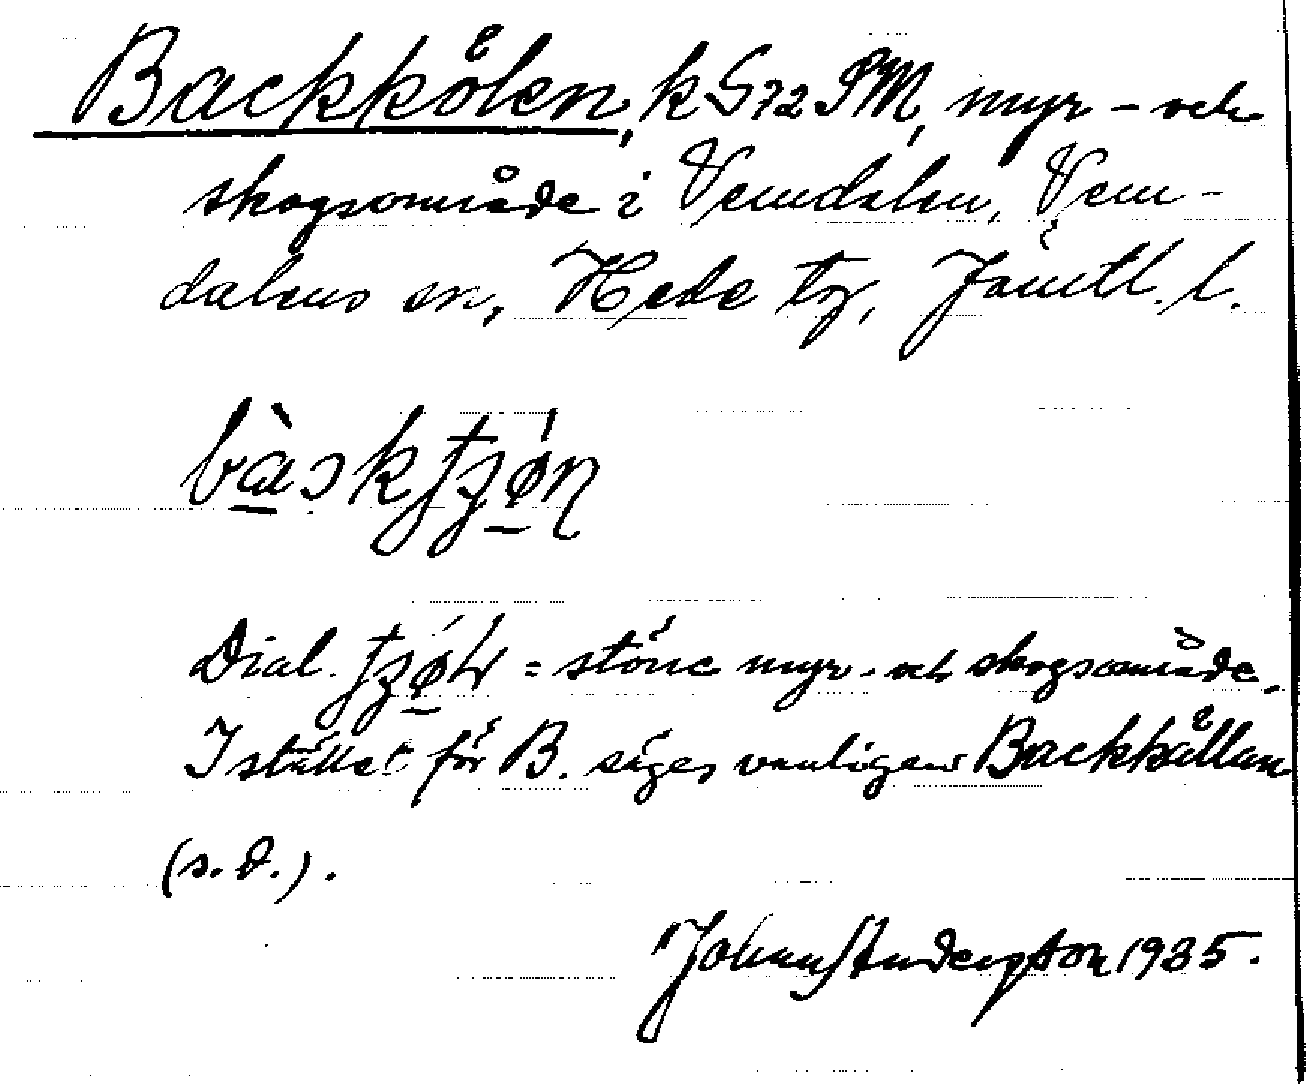 Backkölen, k G72 SM, myr- och
skogsområde i Vemdalen, Vem-
dalens sn, Hede tg, Jämtl. l.
Dial. = större myr- och skogsområde.
I stället för B. säges vanligen Backkällan
(s. d.).
Johan Anderzon 1935.